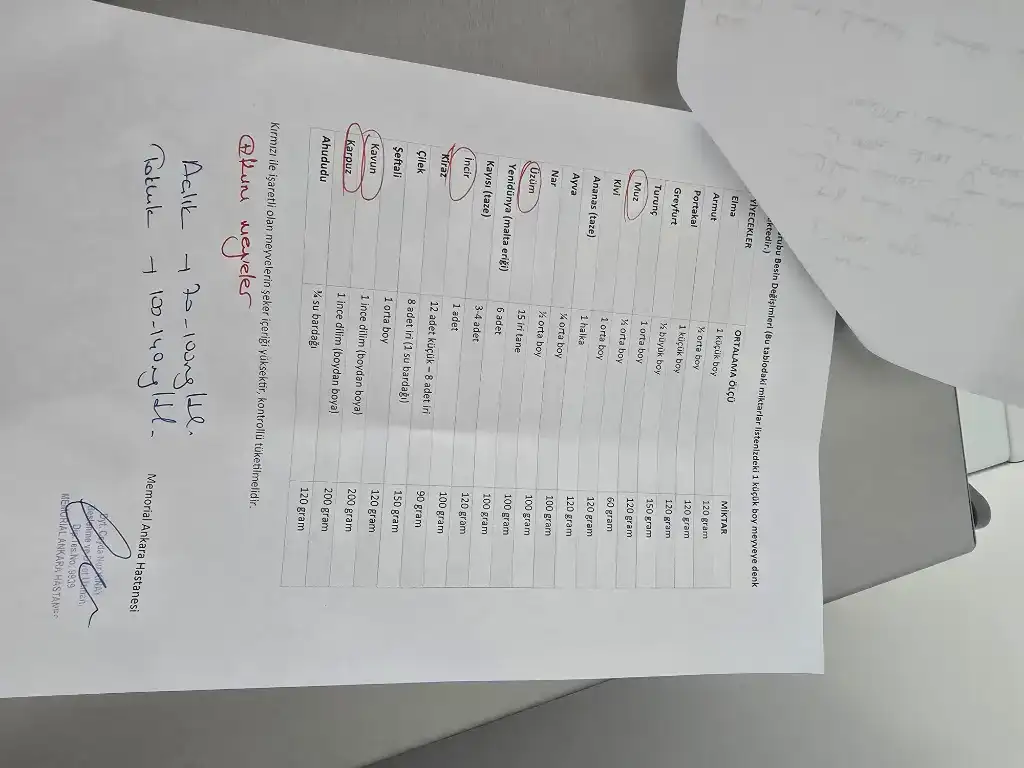 rubu Besin Değişimleri (Bu tablodaki miktarlar listenizdeki 1 küçük boy meyveye denk
ktedir.)
YİYECEKLER ORTALAMA ÖLÇÜ MİKTAR
Elma 1 küçük boy 120 gram
Armut ½ orta boy 120 gram
Portakal 1 küçük boy 120 gram
Greyfurt ½ büyük boy 150 gram
Turunç 1 orta boy 120 gram
Muz ½ orta boy 60 gram
Kivi 1 orta boy 120 gram
Ananas (taze) 1 halka 120 gram
Ayva ¼ orta boy 100 gram
Nar ½ orta boy 100 gram
Üzüm 15 iri tane 100 gram
Yenidünya (malta eriği) 6 adet 100 gram
Kayısı (taze) 3-4 adet 120 gram
İncir 1 adet 100 gram
Kiraz 12 adet küçük – 8 adet iri 90 gram
Çilek 8 adet iri (1 su bardağı) 150 gram
Şeftali 1 orta boy 120 gram
Kavun 1 ince dilim (boydan boya) 200 gram
Karpuz 1 ince dilim (boydan boya) 200 gram
Ahududu ¾ su bardağı 120 gram
Kırmızı ile işaretli olan meyvelerin şeker içeriği yüksektir, kontrollü tüketilmelidir.
meyveler
Açlık → 70-100mg/dL.
Tokluk → 100-140mg/dL.
Memorial Ankara Hastanesi
MEMORIAL ANKARA HASTANESİ